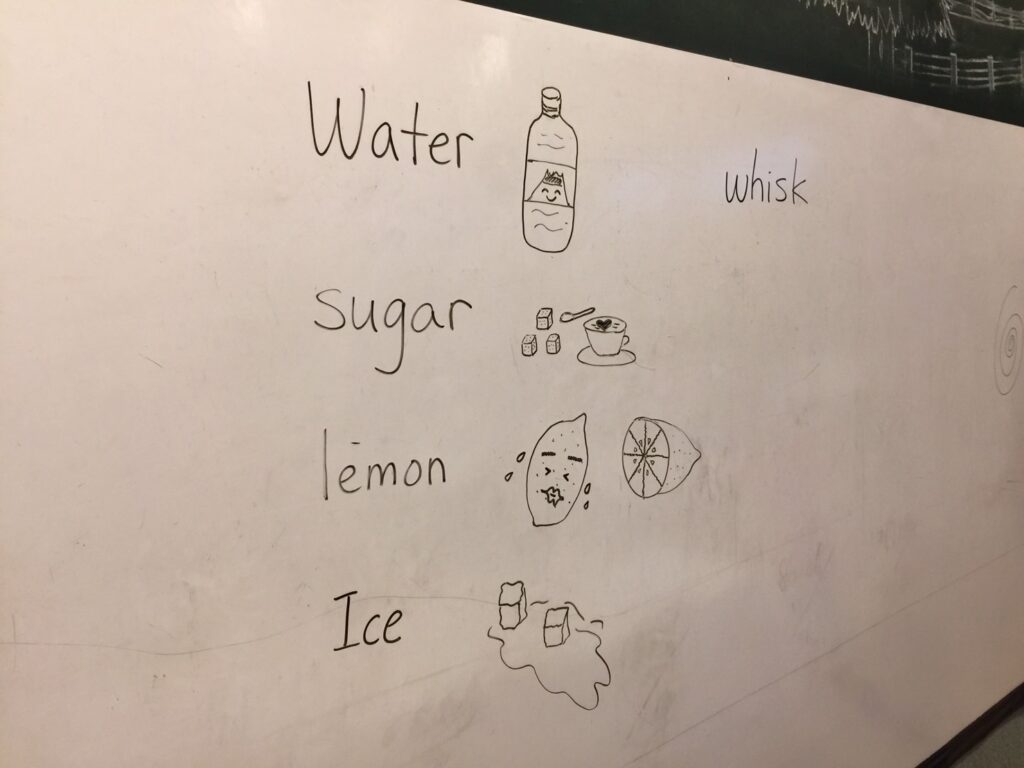 Water
whisk
sugar
lemon
Ice